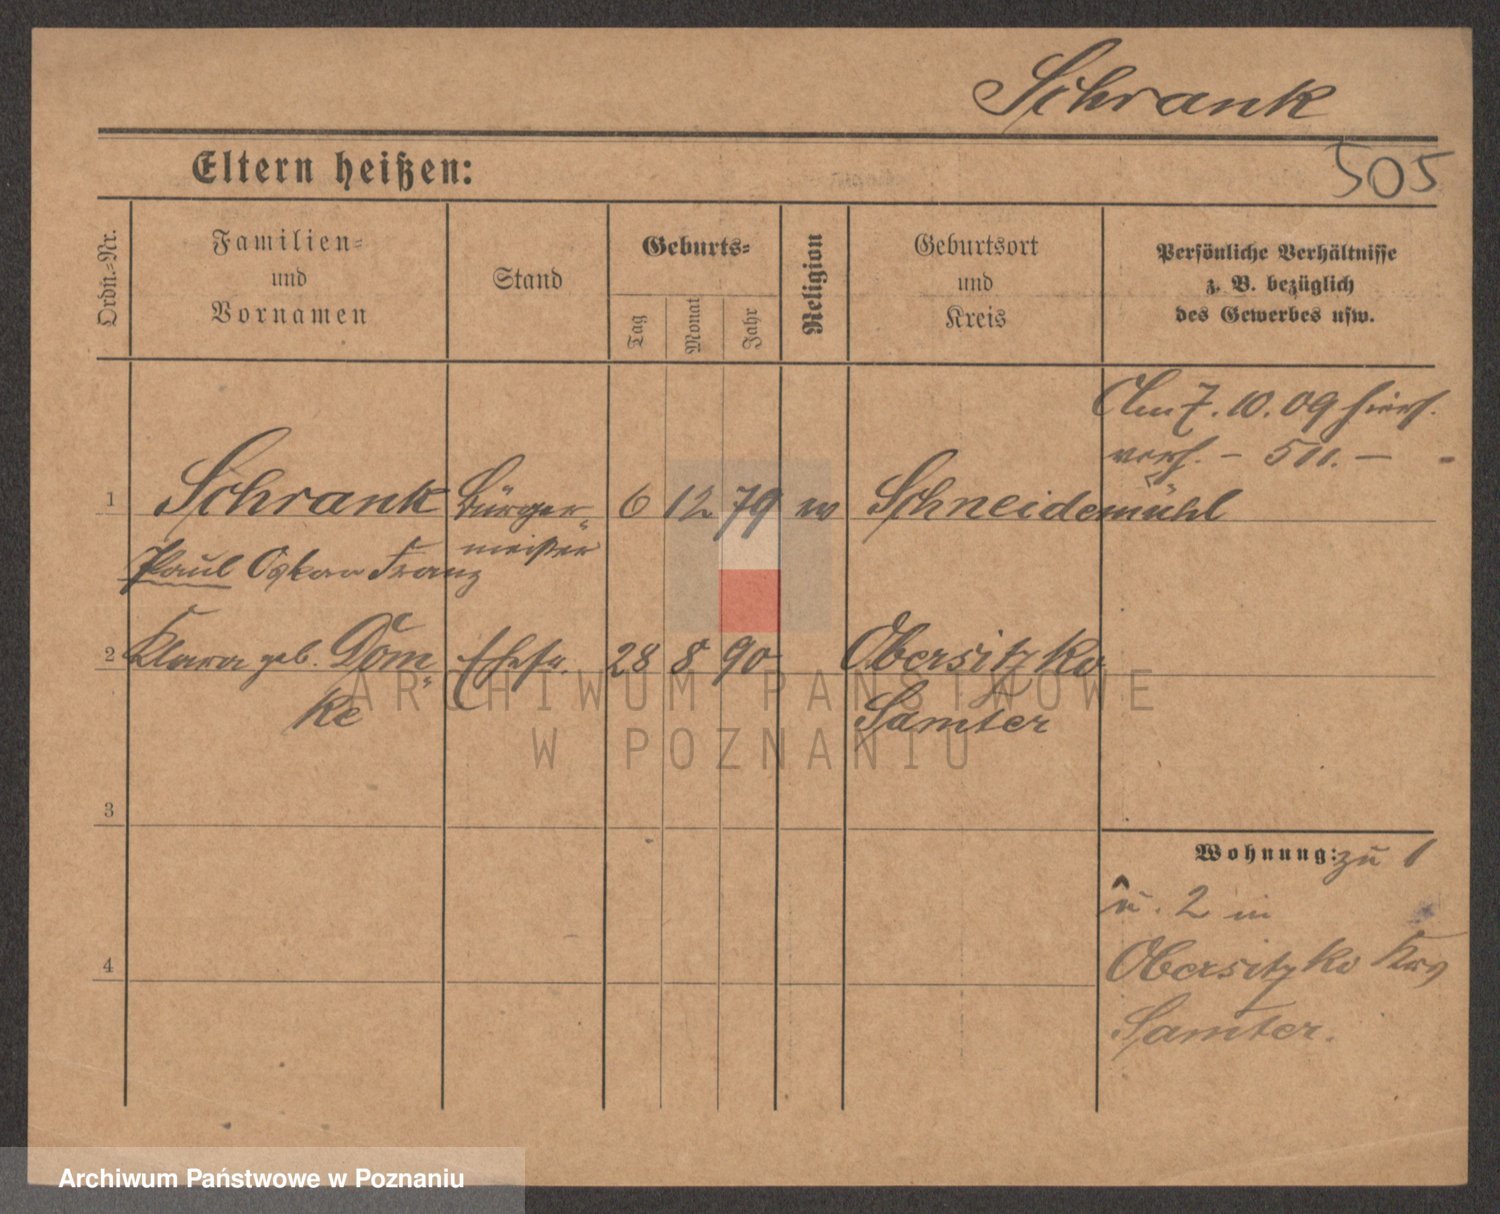 Schrank
505
Eltern heißen:
Ordn.-Nr.
Familien-
und
Vornamen
Stand
Geburts-
Tag
Monat
Jahr
Religion
Geburtsort
und
Kreis
Persönliche Verhältnisse
z. B. bezüglich
des Gewerbes usw.
Am 7. 10. 09 hiers.
– 511. –
1 Schrank Bürger- 6 12 79 Schneidemühl
meister
Paul Oskar Franz
2 Klara geb. Dom- Ehefr. 28 8 90 Obersitzko
ke Samter
3
Wohnung: zu 1
u. 2 in
4 Obersitzko Krs
Samter.
ARCHIWUM PAŃSTWOWE
W POZNANIU
Archiwum Państwowe w Poznaniu